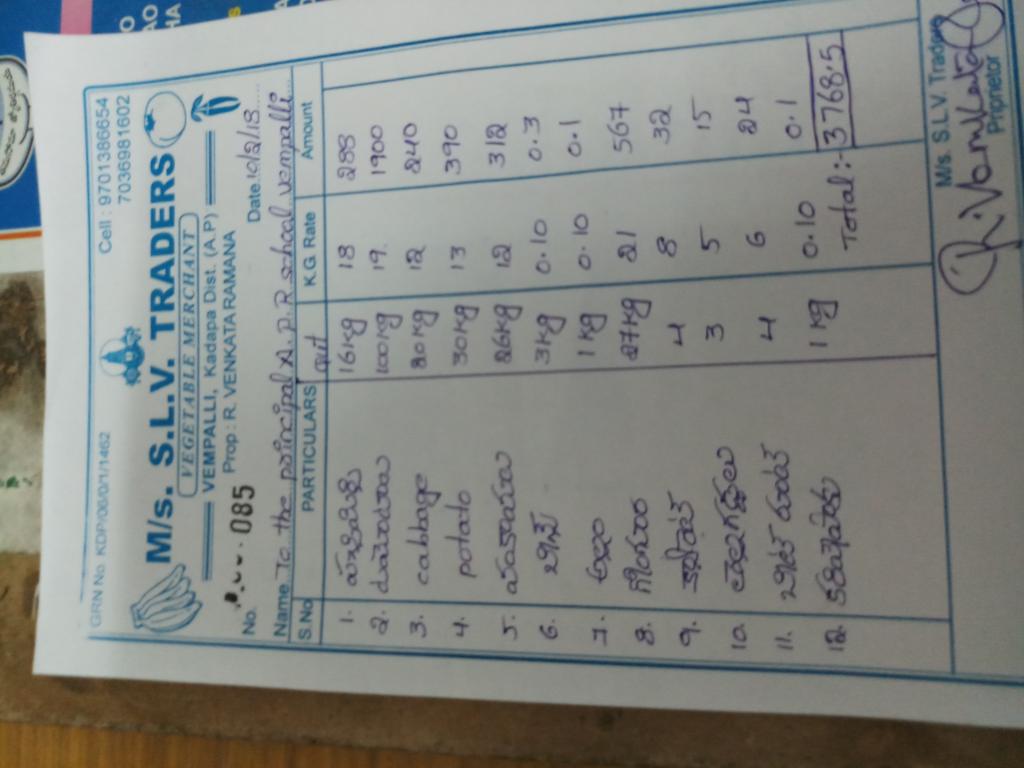 GRN No. KDP/06/01/1462
Cell : 9701386654
7036981602
M/s. S.L.V. TRADERS
VEGETABLE MERCHANT
VEMPALLI, Kadapa Dist. (A.P)
Prop : R. VENKATA RAMANA
No. 085 Date. 10/2/18
Name To the principal A.P.R school vempalli
S.No PARTICULARS Qut KG Rate Amount
1. 16 kg 18 288
2. 100 kg 19 1900
3. cabbage 20 kg 12 240
4. potato 30 kg 13 390
5. 26 kg 12 312
6. బీన్స్ 3 kg 0.10 0.3
7. అల్లం 1 kg 0.10 0.1
8. 27 kg 21 567
9. క్యారెట్ 4 8 32
10. 3 5 15
11. బీట్ రూట్ 4 6 24
12. కరివేపాకు 1 kg 0.10 0.1
Total:- 3768.5
M/s. S.L.V. Traders
R. Venkata
Priprietor